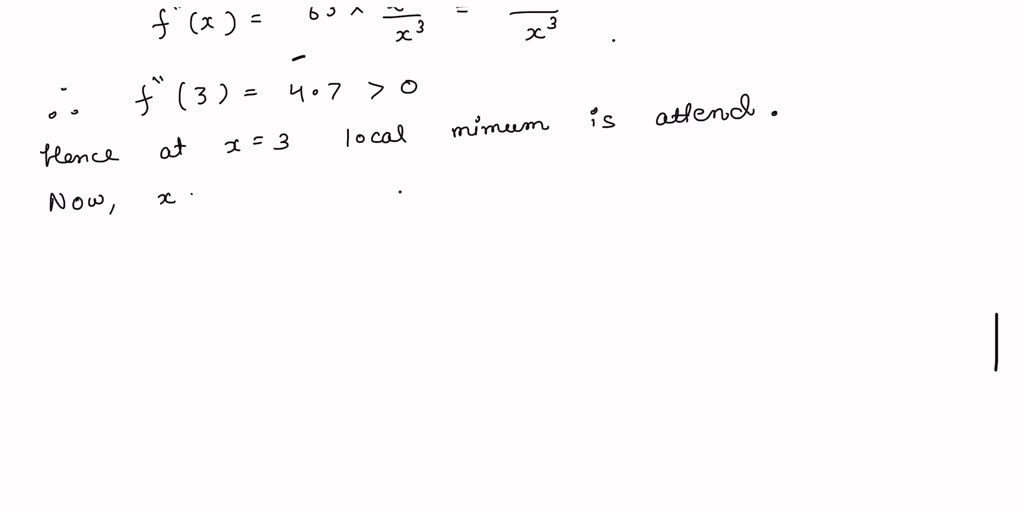 f"(x) = 60 × /x³ = /x³ .
∴ f"(3) = 4.7 > 0
Hence at x = 3 local mimum is attend.
Now, x